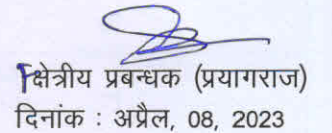 क्षेत्रीय प्रबन्धक (प्रयागराज)
दिनांक : अप्रैल, 08, 2023